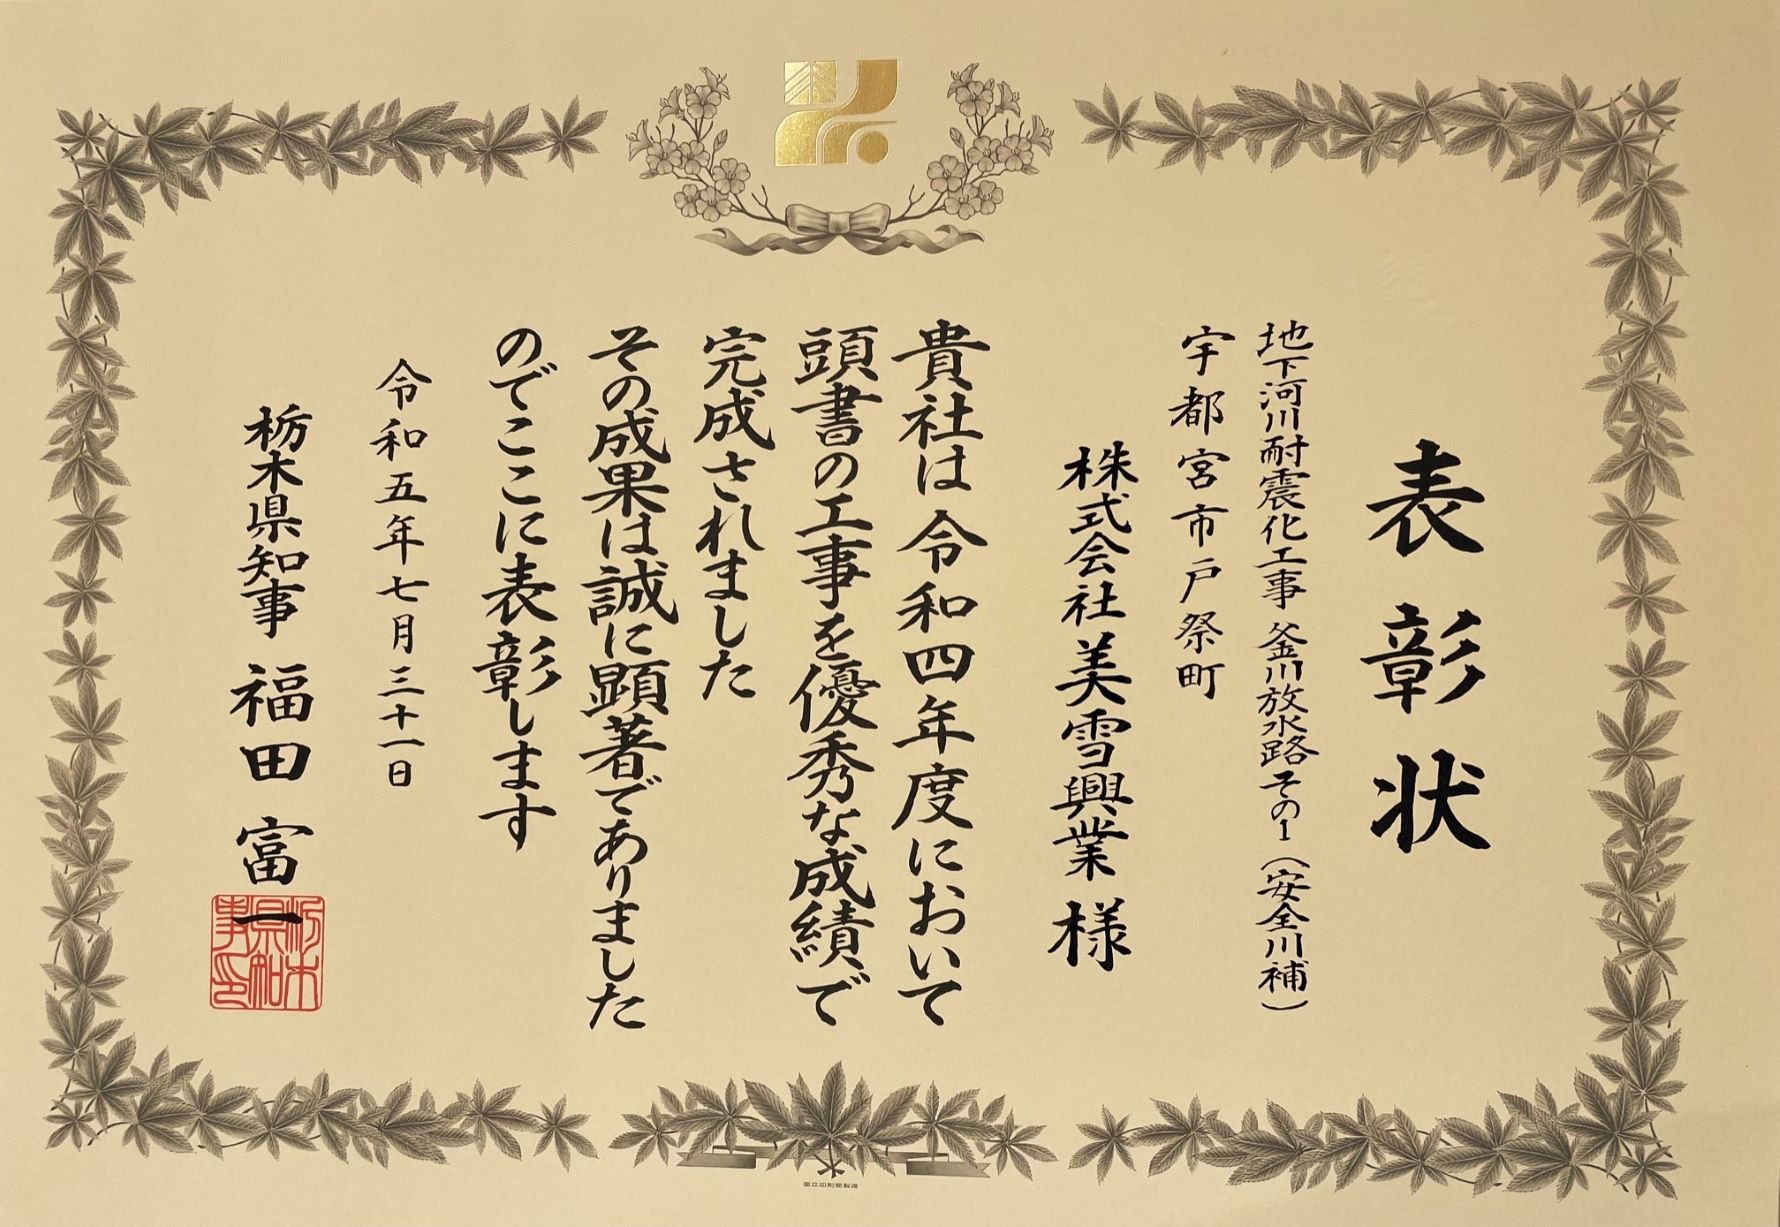 表彰状
地下河川耐震化工事 釜川放水路その1（安全川補）
宇都宮市戸祭町
株式会社美雪興業 様
貴社は令和四年度において
頭書の工事を優秀な成績で
完成されました
その成果は誠に顕著でありました
のでここに表彰します
令和五年七月三十一日
栃木県知事 福田富一
栃木
県知
事印
国立印刷局製造